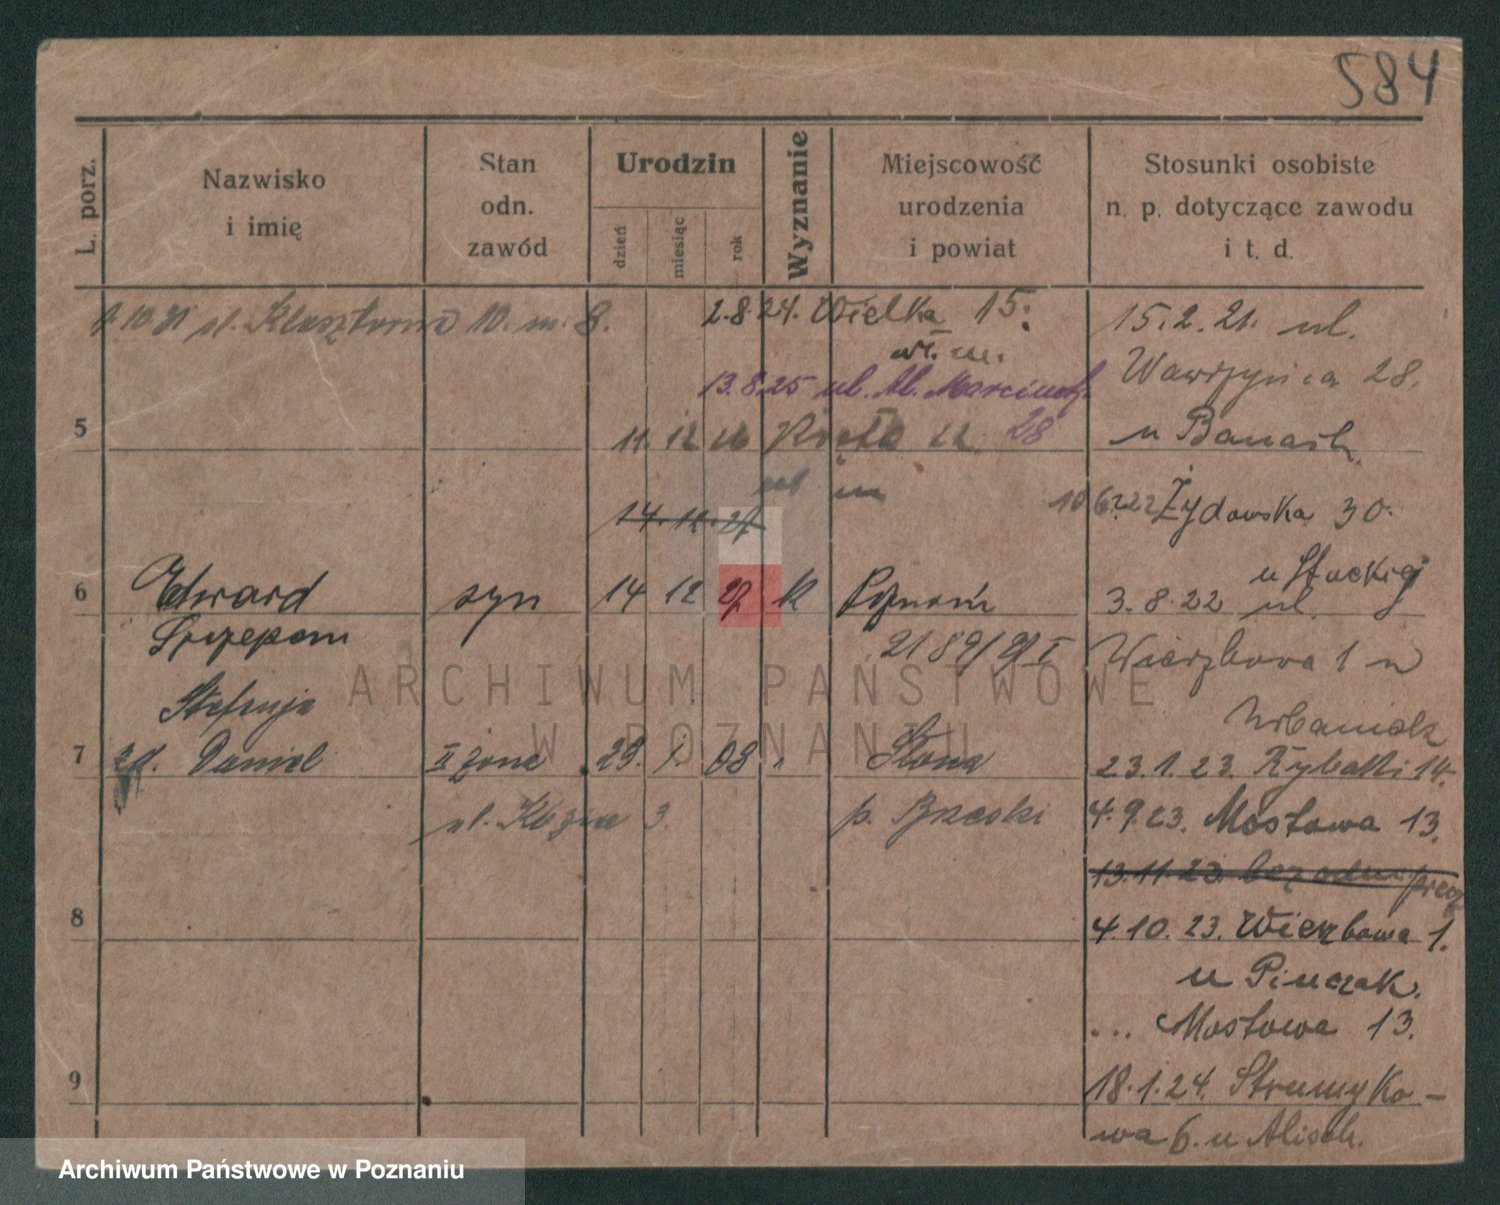 584
L. porz.
Nazwisko
i imię
Stan
odn.
zawód
Urodzin
dzień
miesiąc
rok
Wyznanie
Miejscowość
urodzenia
i powiat
Stosunki osobiste
n. p. dotyczące zawodu
i t. d.
ul. Klasztorna 10. m. 8.
2.8.24. Wielka 15.
wł. m.
13.8.25 ul. Al. Marcink.
28
15.2.21. ul.
Wawrzyńca 28.
u Banach
5
11. 12 22
10 6 22 Żydowska 30.
14. 12. 27
6 Edward syn 14 12 27 k Poznań
Szczepan
2189/27/I
3. 8. 22 ul.
Wierzbowa 1 u
Urbaniak
Stefanja
7 zd. Daniel II żona 29. 1. 08 Słona
ul. Koźia 3.
p. Brzeski
23.1.23. Rybaki 14.
4.9.23. Mostowa 13.
13.11.23. bez
8
4.10.23. Wierzbowa 1.
u Pinczak.
... Mostowa 13.
9
18.1.24. Strumyko-
wa 6. u
ARCHIWUM PAŃSTWOWE
W POZNANIU
Archiwum Państwowe w Poznaniu